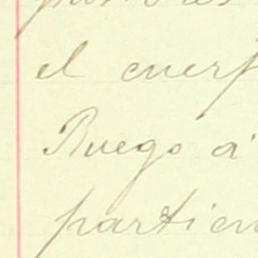 el cuerp
Ruego á
partien